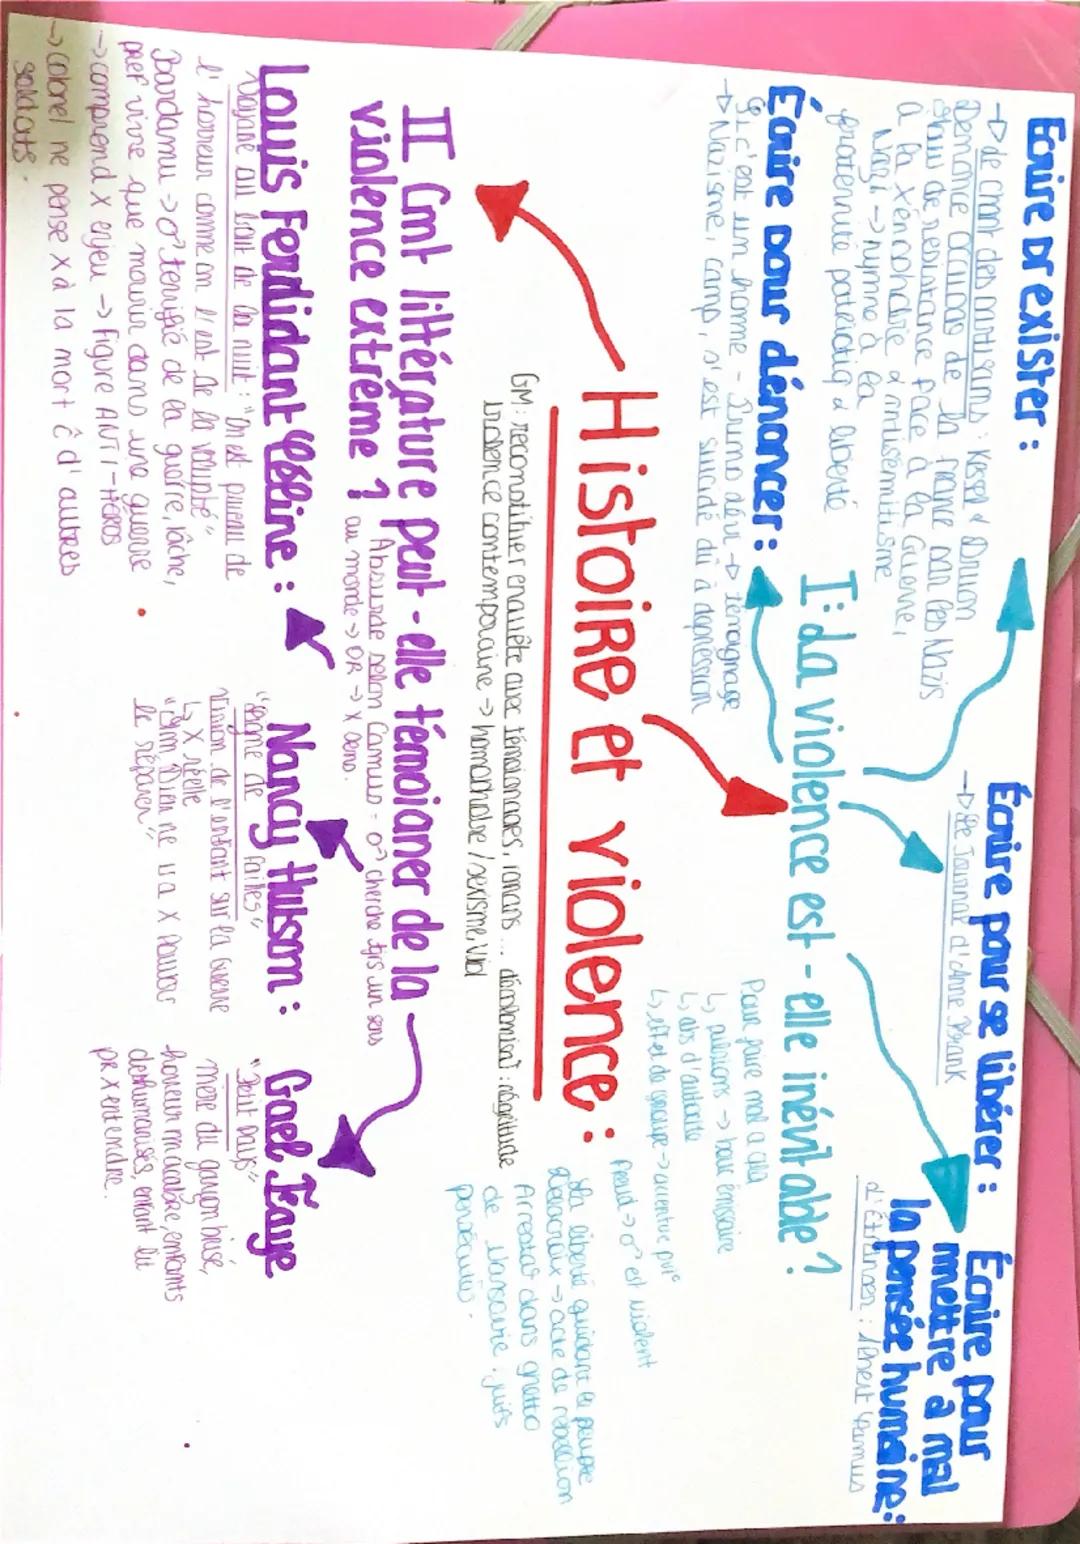 Ecrire pr exister :
→ de chant des partisans : Kessel & Druon
Dénonce occupat° de la France par les Nazis
de résistance face à la Guerre,
à la xénophobie & antisémitisme
Nazi → hymne à la
fraternité patriotiq & liberté
Écrire pour se libérer :
→ Le Journal d'Anne Frank
Écrire pour
mettre à mal
la pensée humaine :
L'Étranger : Albert Camus
Écrire pour dénoncer :
Si c'est un homme - Primo Lévi → témoignage
→ Nazisme, camp, s'est suicidé dû à dépression
I: La violence est-elle inévitable ?
Pour faire mal a qln
↳ pulsions → bouc émissaire
↳ abs d'autorité
↳ effet de groupe → accentue puls°
Freud → ♂ est violent
Histoire et violence :
La liberté guidant le peuple
Delacroix → acte de rébellion
Arrestat° dans ghetto
de Varsovie, juifs
persécutés.
GM : reconstituer enquête avec témoignages, romans ... décolonisat° : négritude
Violence contemporaine → homophobe / sexisme, viol
II Cmt littérature peut-elle témoigner de la
violence extrême ?
Absurde selon Camus = ♂ cherche tjrs un sens
au monde → OR → X sens.
Louis Ferdidant Céline :
Voyage au bout de la nuit : "On est puceau de
l'horreur comme on l'est de la volupté"
Bardamu → ♂ terrifié de la guerre, lâche,
préf vivre que mourir dans une guerre
→ comprend X enjeu → figure ANTI-HÉROS
→ colonel ne pense X à la mort ê d'autres
soldats.
Nancy Huston :
"Ligne de failles"
Vision de l'enfant sur la Guerre
↳ X réelle
"Dieu ne va X pouvoir
le réparer"
Gael Faye
"Petit Pays"
mère du garçon brisé,
horreur macabre, enfants
déshumanisés, enfant lit
pr X entendre.